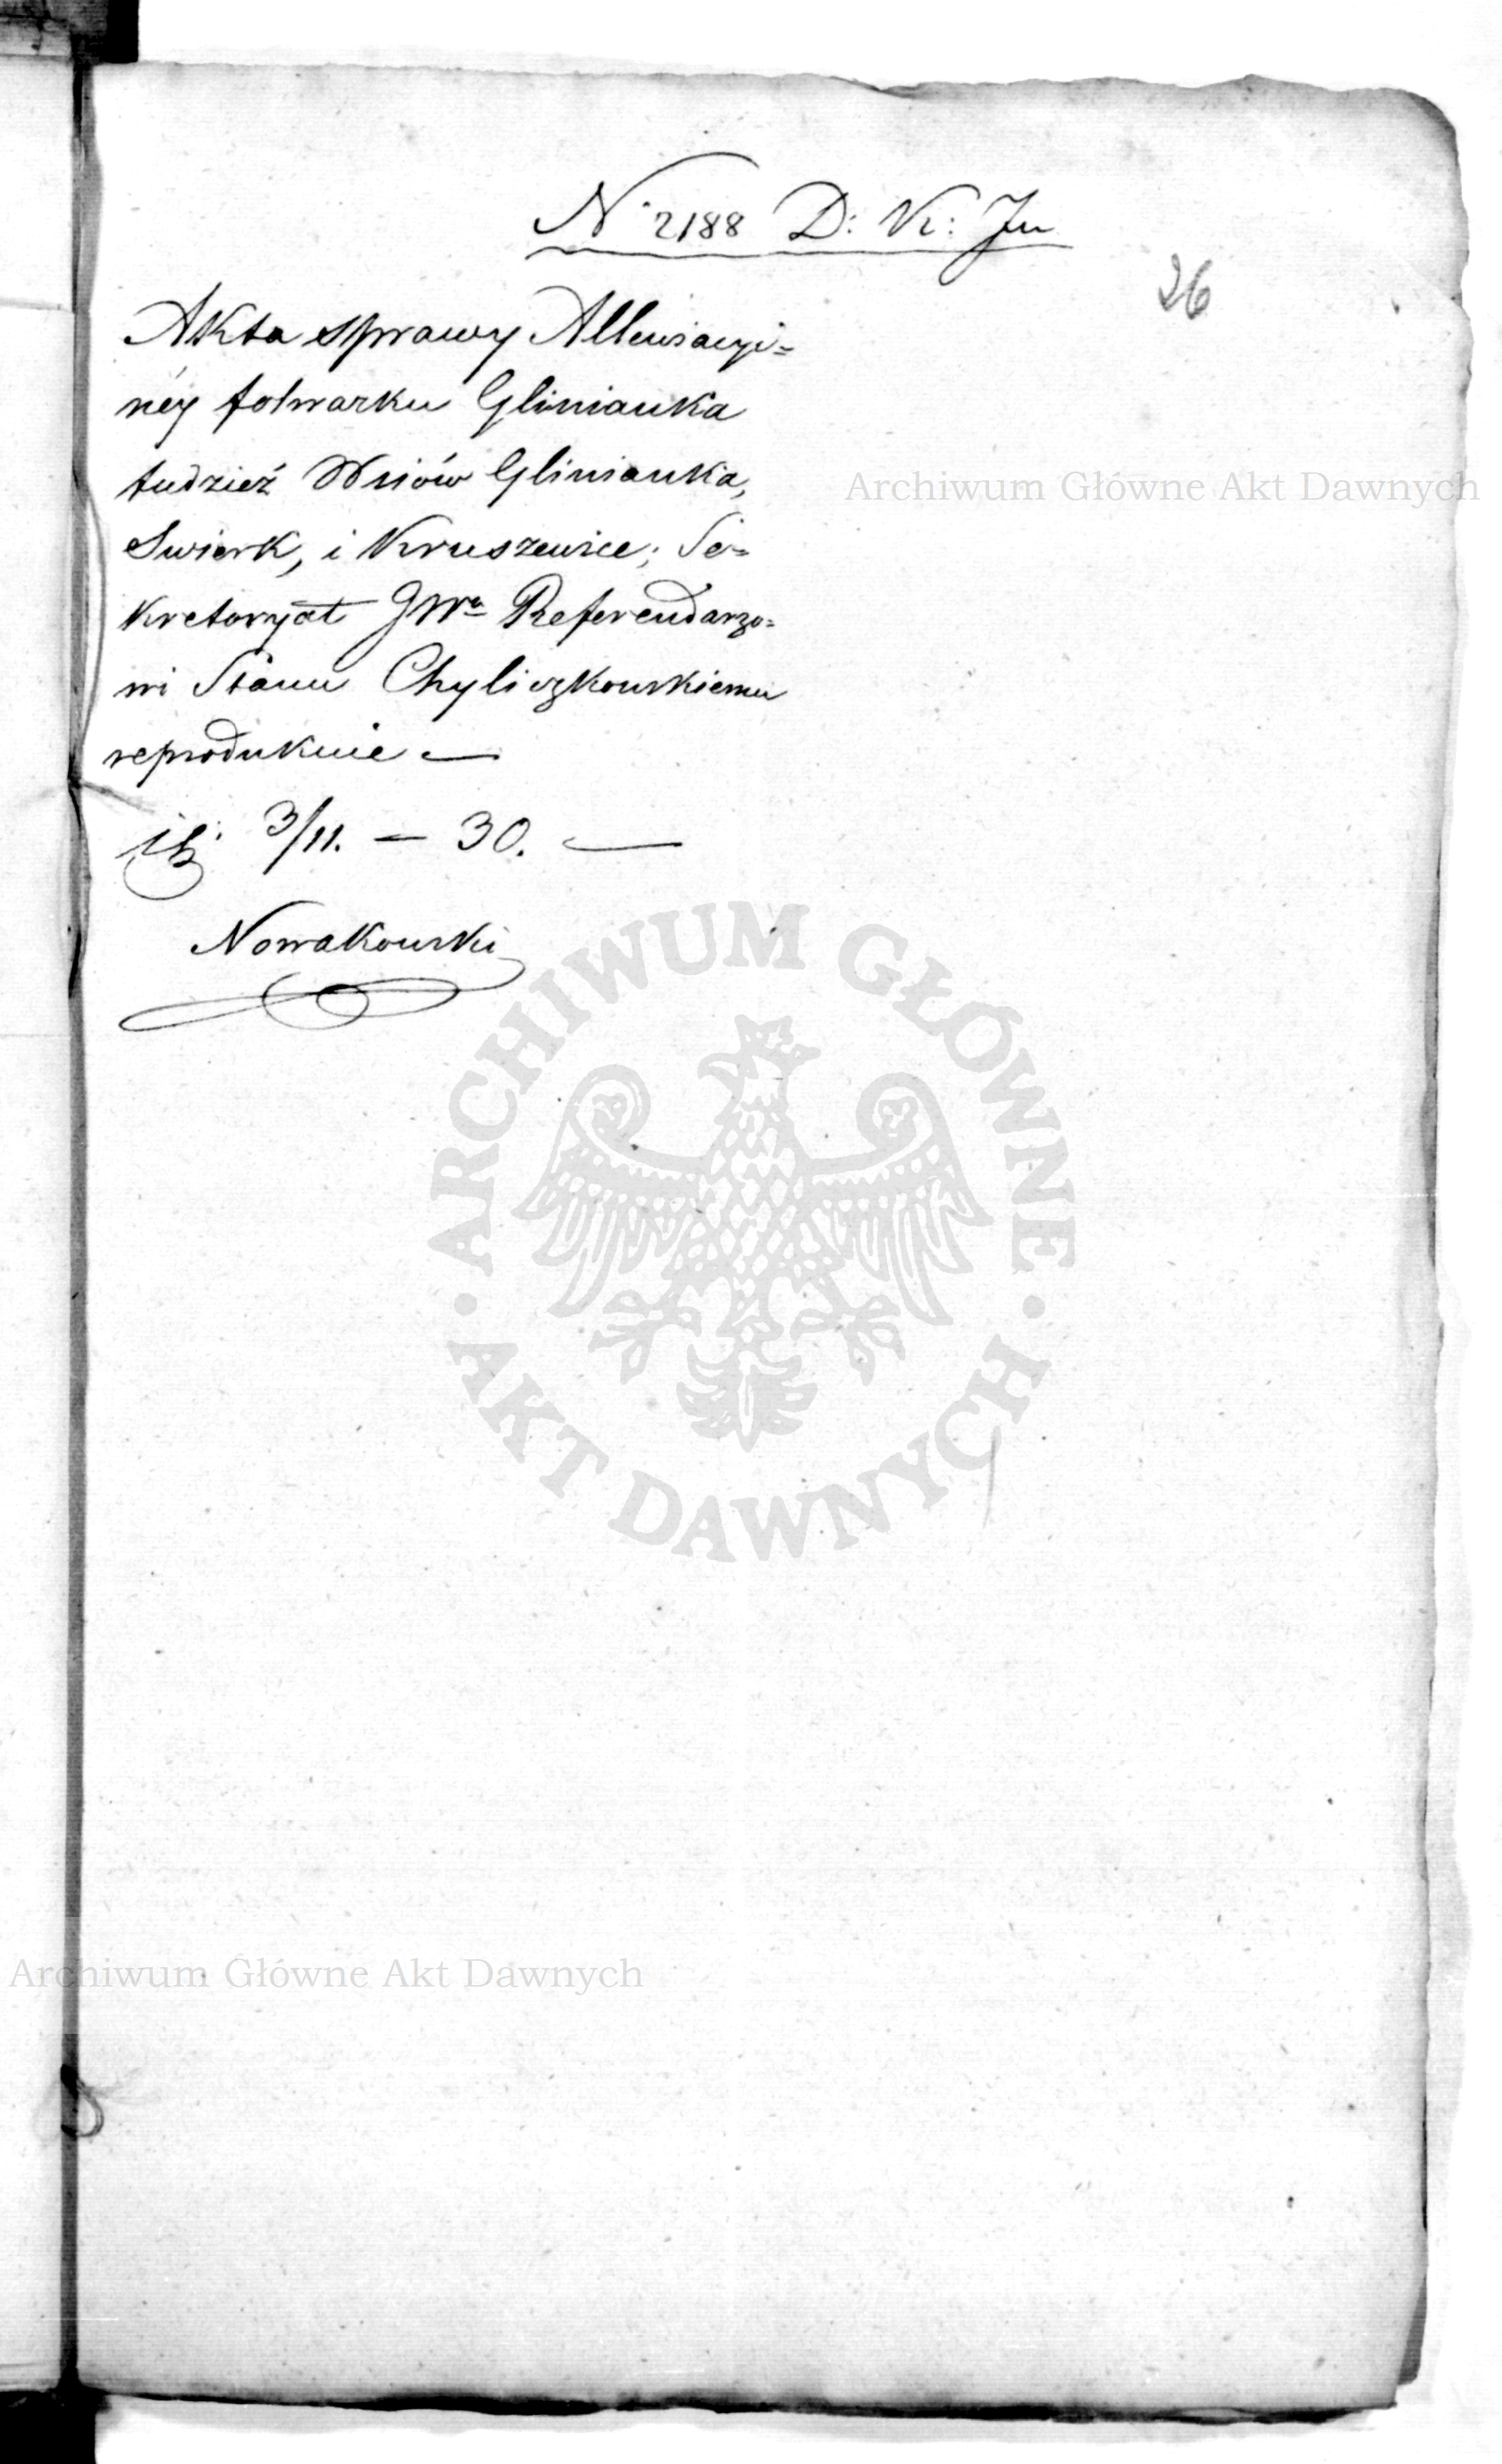 N 2188 D: K: Ju
26
Akta sprawy Allewiacyi=
néy folwarku Glinianka
tudzież Wsiów Glinianka,
Swierk, i Kruszewice; Se=
kretaryat JWu Referendarzo=
wi Stanu Chyliczkowskiemu
reprodukuie —
3/11. — 30. —
Nowakowski
Archiwum Główne Akt Dawnych
ARCHIWUM GŁÓWNE
AKT DAWNYCH
Archiwum Główne Akt Dawnych